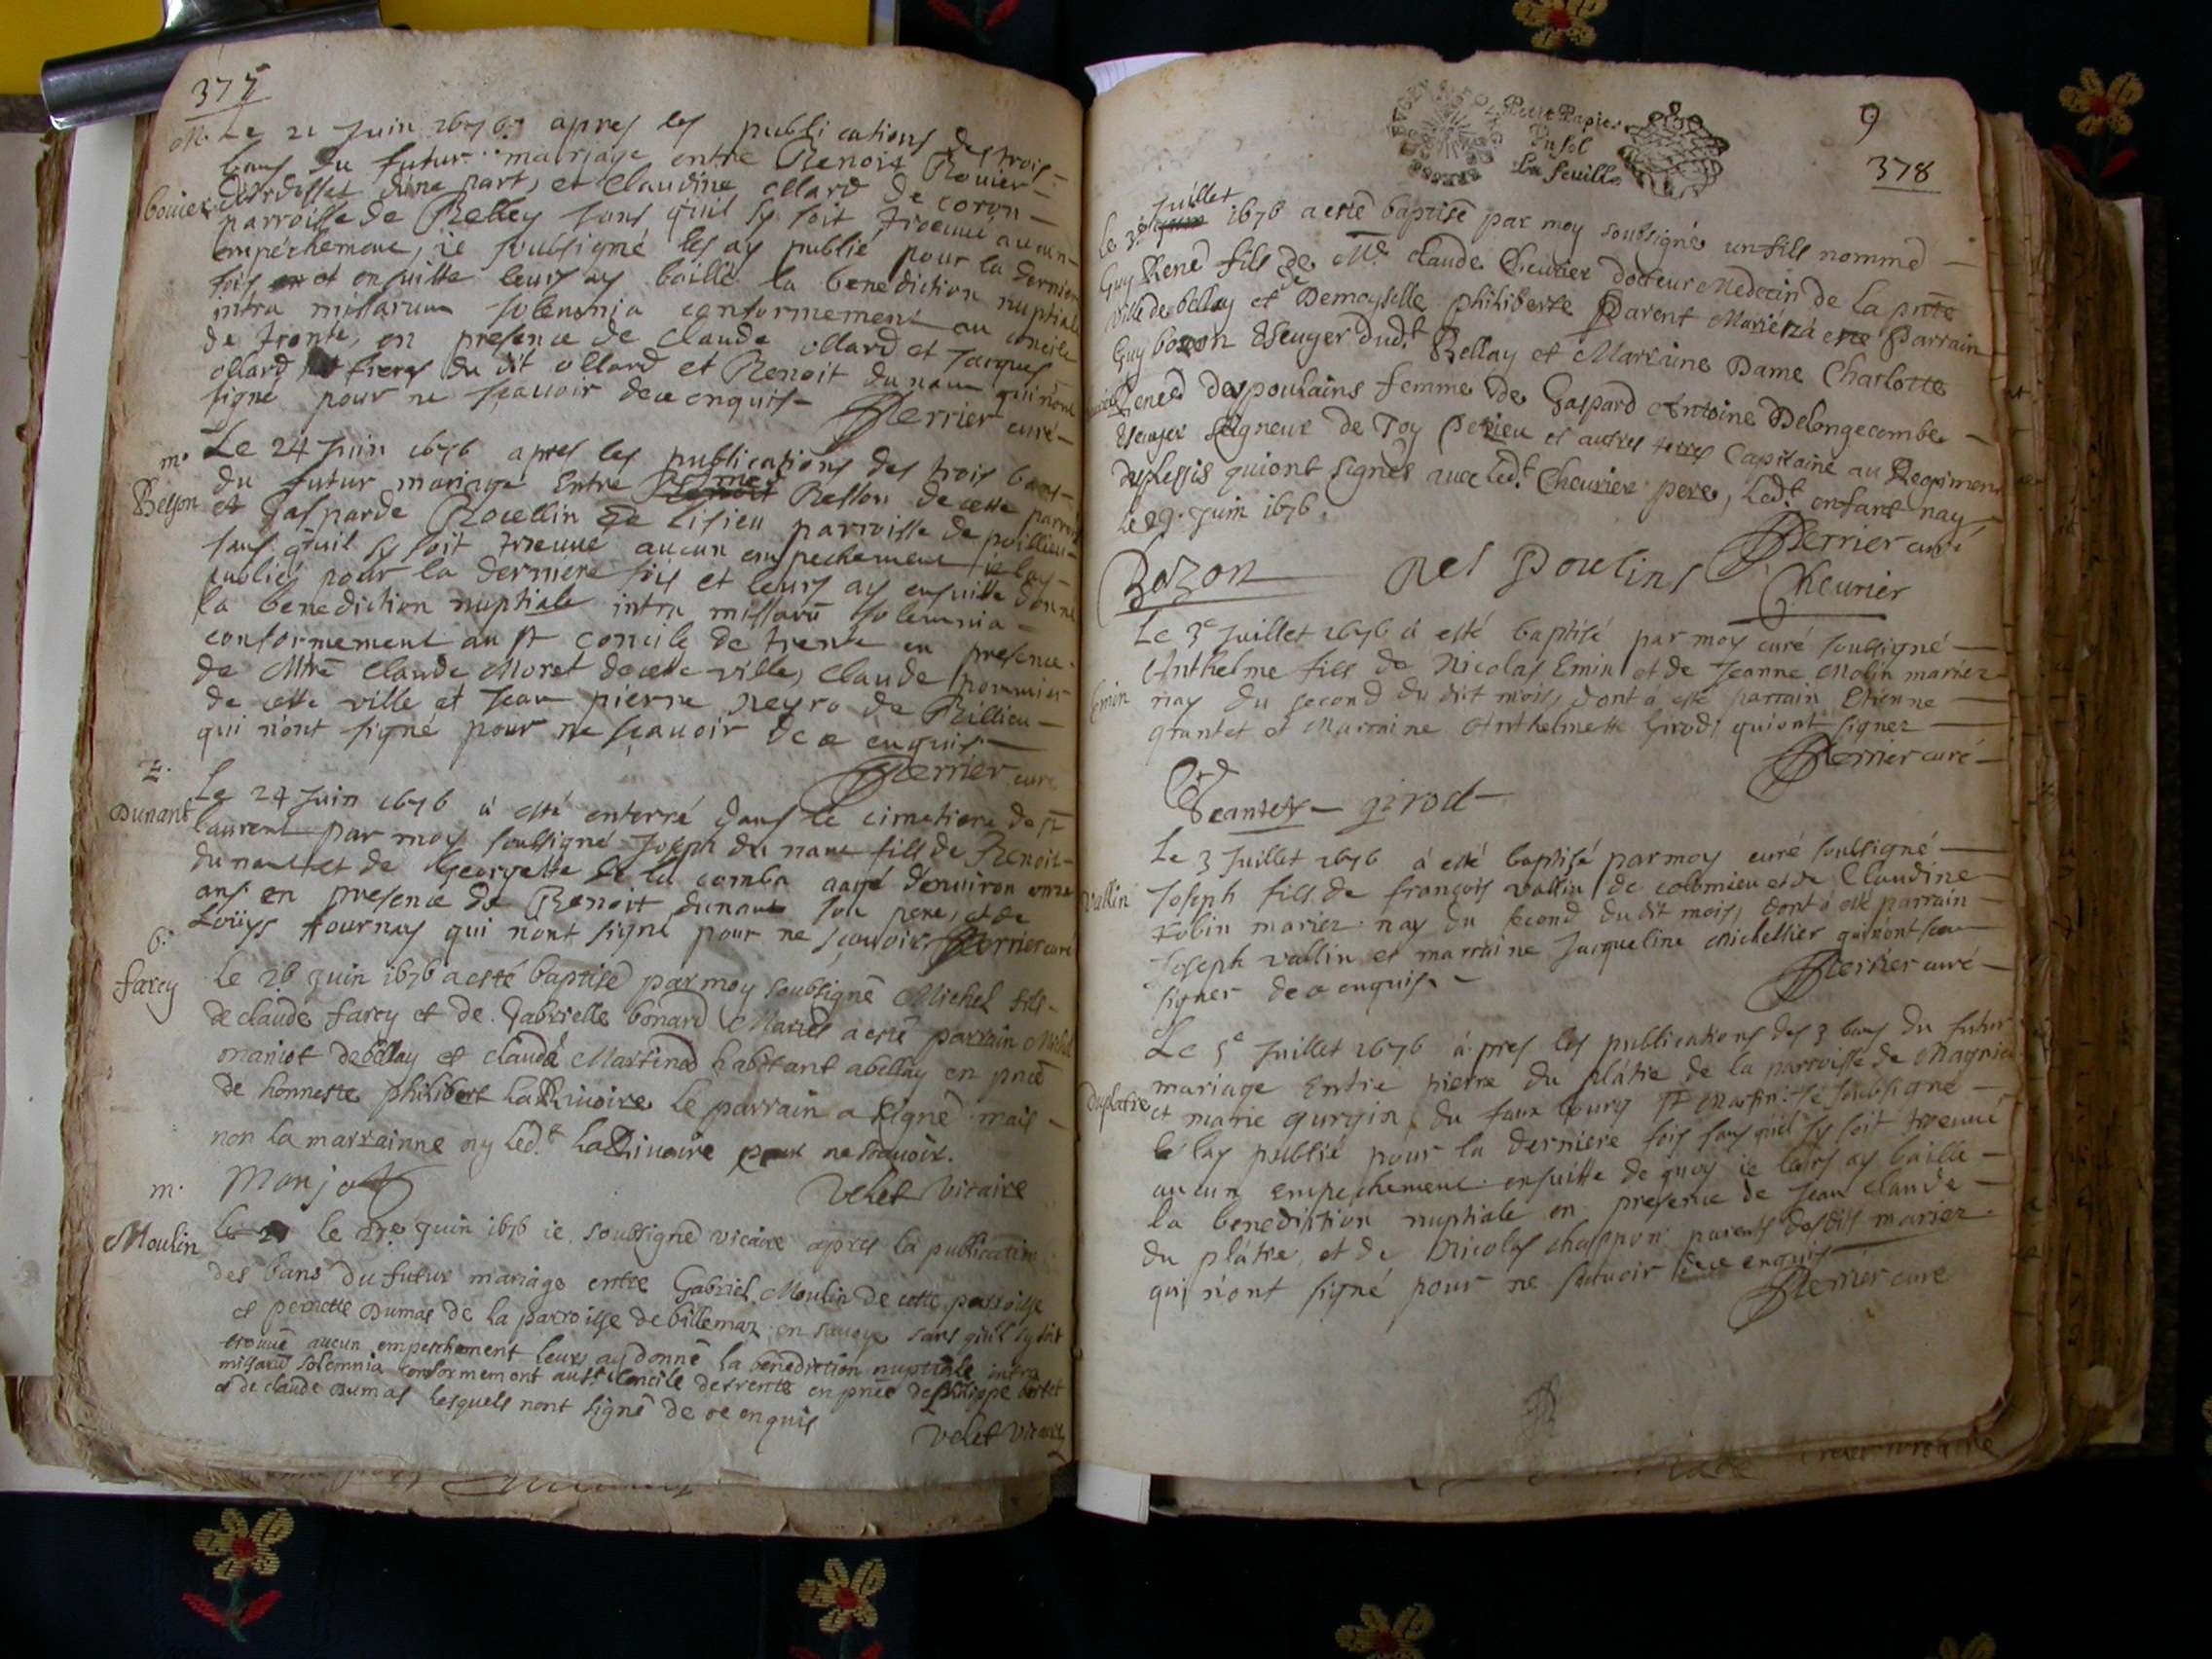 377
M. Le 21 Juin 1676 apres les publications des trois
bans du futur mariage entre Benoit Bouier
Bouier dardosset d'une part, et Claudine ollard de coron
parroisse de Belley sans qu'il sy soit trouué aucun
empechement, ie soubsigné les ay publié pour la derniere
fois et ensuitte leurs ay baillé la benediction nuptiale
intra missarum solemnia conformement au concile
de trente, en presence de Claude ollard et Jacques
ollard, freres du dit ollard et Benoit dunant qui n'ont
signé pour ne sçauoir de ce enquis
Perrier curé
m. Le 24 Juin 1676 apres les publications des trois bans
du futur mariage Entre Besson de cette parroisse
Besson et Gasparde Rocellin de Lisieu parroisse de poillieu
sans qu'il sy soit trouué aucun empechement ie lay
publiés pour la derniere fois et leurs ay ensuitte donné
la benediction nuptiale intra missarū solemnia
conformement au st concile de trente en presence
de Mtre Claude Moret de cette ville, Claude pommier
de cette ville et Jean pierre neyro de Billieu
qui n'ont signé pour ne sçauoir de ce enquis
Perrier curé
Le 24 Juin 1676 à esté enterré dans le cimetiere de st
Dunant laurent par moy soubsigné Joseph du nant fils de Benoit
du nant et de Georgette de la combe aagé d'enuiron onze
ans en presence de Benoit dunant son pere, et de
Loüys tournay qui n'ont signé pour ne sçauoir Perrier curé
b.
farcy Le 26 Juin 1676 a esté baptisé par moy soubsigné Michel fils
de claude farcy et de Gabrielle bonard Mariés a esté parrain Michel
maniot debellay et claudа Martined habitant abellay en pnce
de honneste philibert La Riuoire le parrain a signé mais
non la marrainne ny led.t La Riuoire pour ne sçauoir.
Manjot Velet Vicaire
m.
Moulin le 27e Juin 1676 ie soubsigné vicaire apres la publication
des bans du futur mariage entre Gabriel Moulin de cette parroisse
et pernette Dumas de la parroisse de billemaz en sauoye sans quil sy soit
trouué aucun empeschement leurs ay donné la benediction nuptiale intra
missarū solemnia conformement au st. Concile de trente en pnce de philippe
et de claude Dumas lesquels nont signé de ce enquis
Velet Vicaire
Petit Papier
Un sol
La feuille
9
378
Juillet
Le 3e 1676 a esté baptisé par moy soubsigné un fils nommé
Guy René fils de Mr. claude Cheurier docteur Medecin de la pnte
ville de bellay et de Demoyselle philiberte Parent Mariés a esté Parrain
Guy bozon Escuyer dud.t Bellay et Marraine Dame Charlotte
Renée despoulains femme de Gaspard Antoine Delongecombe
Escuyer seigneur de Toy Perieu et autres terres Capitaine au Regiment
duplessis qui ont signés auec led.t Cheurier pere, led.t enfant nay
le 29. Juin 1676.
Perrier curé
Bozon Des Poulins Cheurier
Le 3e Juillet 1676 à esté baptisé par moy curé soubsigné
Anthelme fils de Nicolas Emin et de Jeanne Molin mariez
Emin nay du second du dit mois, dont à esté parrain Etienne
grantet et Marraine Anthelmette Girod, qui ont signez
Perrier curé
Grantet girod
Le 3 Juillet 1676 à esté baptisé par moy curé soubsigné
Vallin Joseph fils de françois vallin de colomieu et de Claudine
robin mariez nay du second du dit mois, dont à esté parrain
Joseph vallin et marraine Jacqueline Michellier qui n'ont sceu
signer de ce enquis.
Perrier curé
Le 5e Juillet 1676 à pres les publications des 3 bans du futur
mariage Entre pierre du plâtre de la parroisse de Magnieu
Duplatre et marie gurgin du faux bourg st Martin. Ie soubsigné
lay publié pour la derniere fois sans quil sy soit trouué
aucun empechement ensuitte de quoy ie leurs ay baillé
la benediction nuptiale en presence de Jean Claude
du plâtre, et de Nicolas chappon parents desdits mariez
qui n'ont signé pour ne sçauoir de ce enquis
Perrier curé